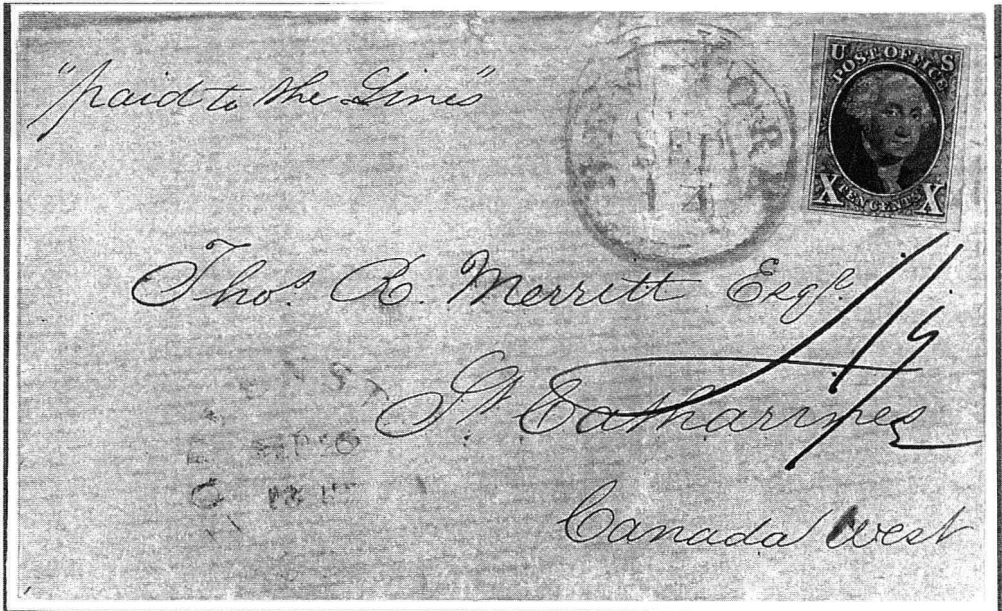 "paid to the Lines"
NEW YORK
SEP
U S
POST OFFICE
X TEN CENTS X
Thos. R. Merritt Esqr.
St Catharines
Canada West